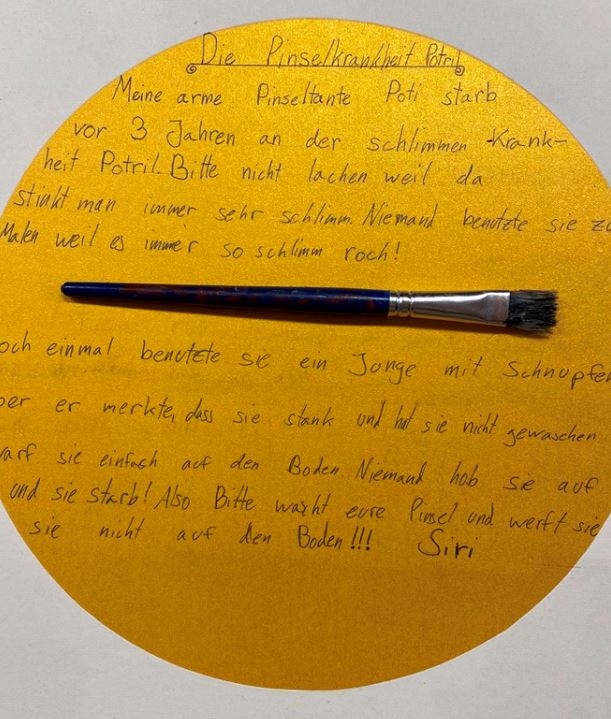 Die Pinselkrankheit Potril
Meine arme Pinseltante Poti starb
vor 3 Jahren an der schlimmen Krank-
heit Potril. Bitte nicht lachen weil da
stinkt man immer sehr schlimm. Niemand benutzte sie zu
Malen weil es immer so schlimm roch!
och einmal benutzte sie ein Junge mit Schnupfen
ber er merkte, dass sie stank und hat sie nicht gewaschen
warf sie einfach auf den Boden. Niemand hob sie auf
und sie starb! Also Bitte wascht eure Pinsel und werft sie
sie nicht auf den Boden!!! Siri